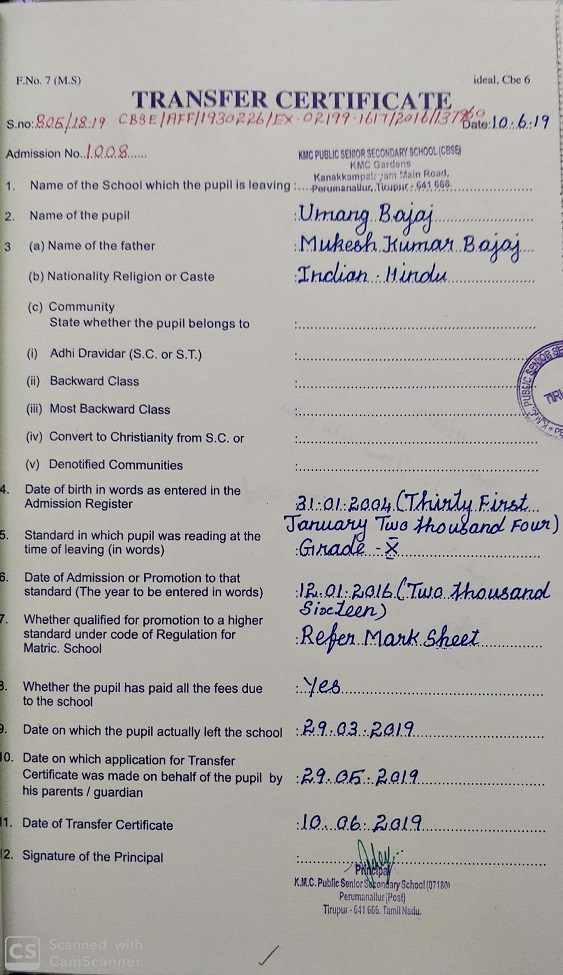 F.No. 7 (M.S) ideal, Cbe 6
TRANSFER CERTIFICATE
S.no: 805/18.19 CBSE/AFF/1930226/EX-02199-1617/2016/ Date: 10.6.19
Admission No. 1008 KMC PUBLIC SENIOR SECONDARY SCHOOL (CBSE)
KMC Gardens
Kanakkampalayam Main Road,
1. Name of the School which the pupil is leaving : Perumanallur, Tirupur - 641 666.
2. Name of the pupil : Umang Bajaj
3 (a) Name of the father : Mukesh Kumar Bajaj
(b) Nationality Religion or Caste : Indian - Hindu
(c) Community
State whether the pupil belongs to :
(i) Adhi Dravidar (S.C. or S.T.) :
(ii) Backward Class :
(iii) Most Backward Class :
(iv) Convert to Christianity from S.C. or :
(v) Denotified Communities :
4. Date of birth in words as entered in the
Admission Register 31.01.2004 (Thirty First
January Two thousand Four)
5. Standard in which pupil was reading at the
time of leaving (in words) : Grade - X
6. Date of Admission or Promotion to that
standard (The year to be entered in words) : 12.01.2016 (Two thousand
Sixteen)
7. Whether qualified for promotion to a higher
standard under code of Regulation for : Refer Mark Sheet
Matric. School
8. Whether the pupil has paid all the fees due : Yes
to the school
9. Date on which the pupil actually left the school : 29.03.2019
10. Date on which application for Transfer
Certificate was made on behalf of the pupil by : 29.05.2019
his parents / guardian
11. Date of Transfer Certificate : 10.06.2019
12. Signature of the Principal :
Principal
K.M.C. Public Senior Secondary School (07180)
Perumanallur (Post)
Tirupur - 641 666. Tamil Nadu.
CS Scanned with
CamScanner